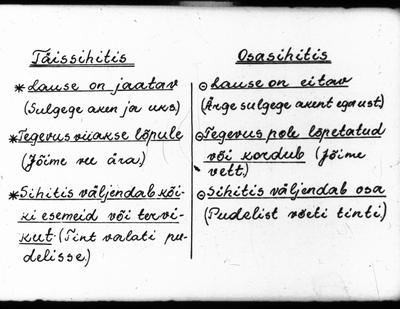 Täissihitis
* Lause on jaatav
(Sulgege aken ja uks)
* Tegevus viiakse lõpule
(Jõime vee ära.)
* Sihitis väljendab kõi-
ki esemeid või tervi-
kut (Tint valati pu-
delisse.)
Osasihitis
⊖ Lause on eitav
(Ärge sulgege akent ega ust)
⊖ Tegevus pole lõpetatud
või kordub (Jõime
vett.)
⊖ Sihitis väljendab osa
(Pudelist võeti tinti.)